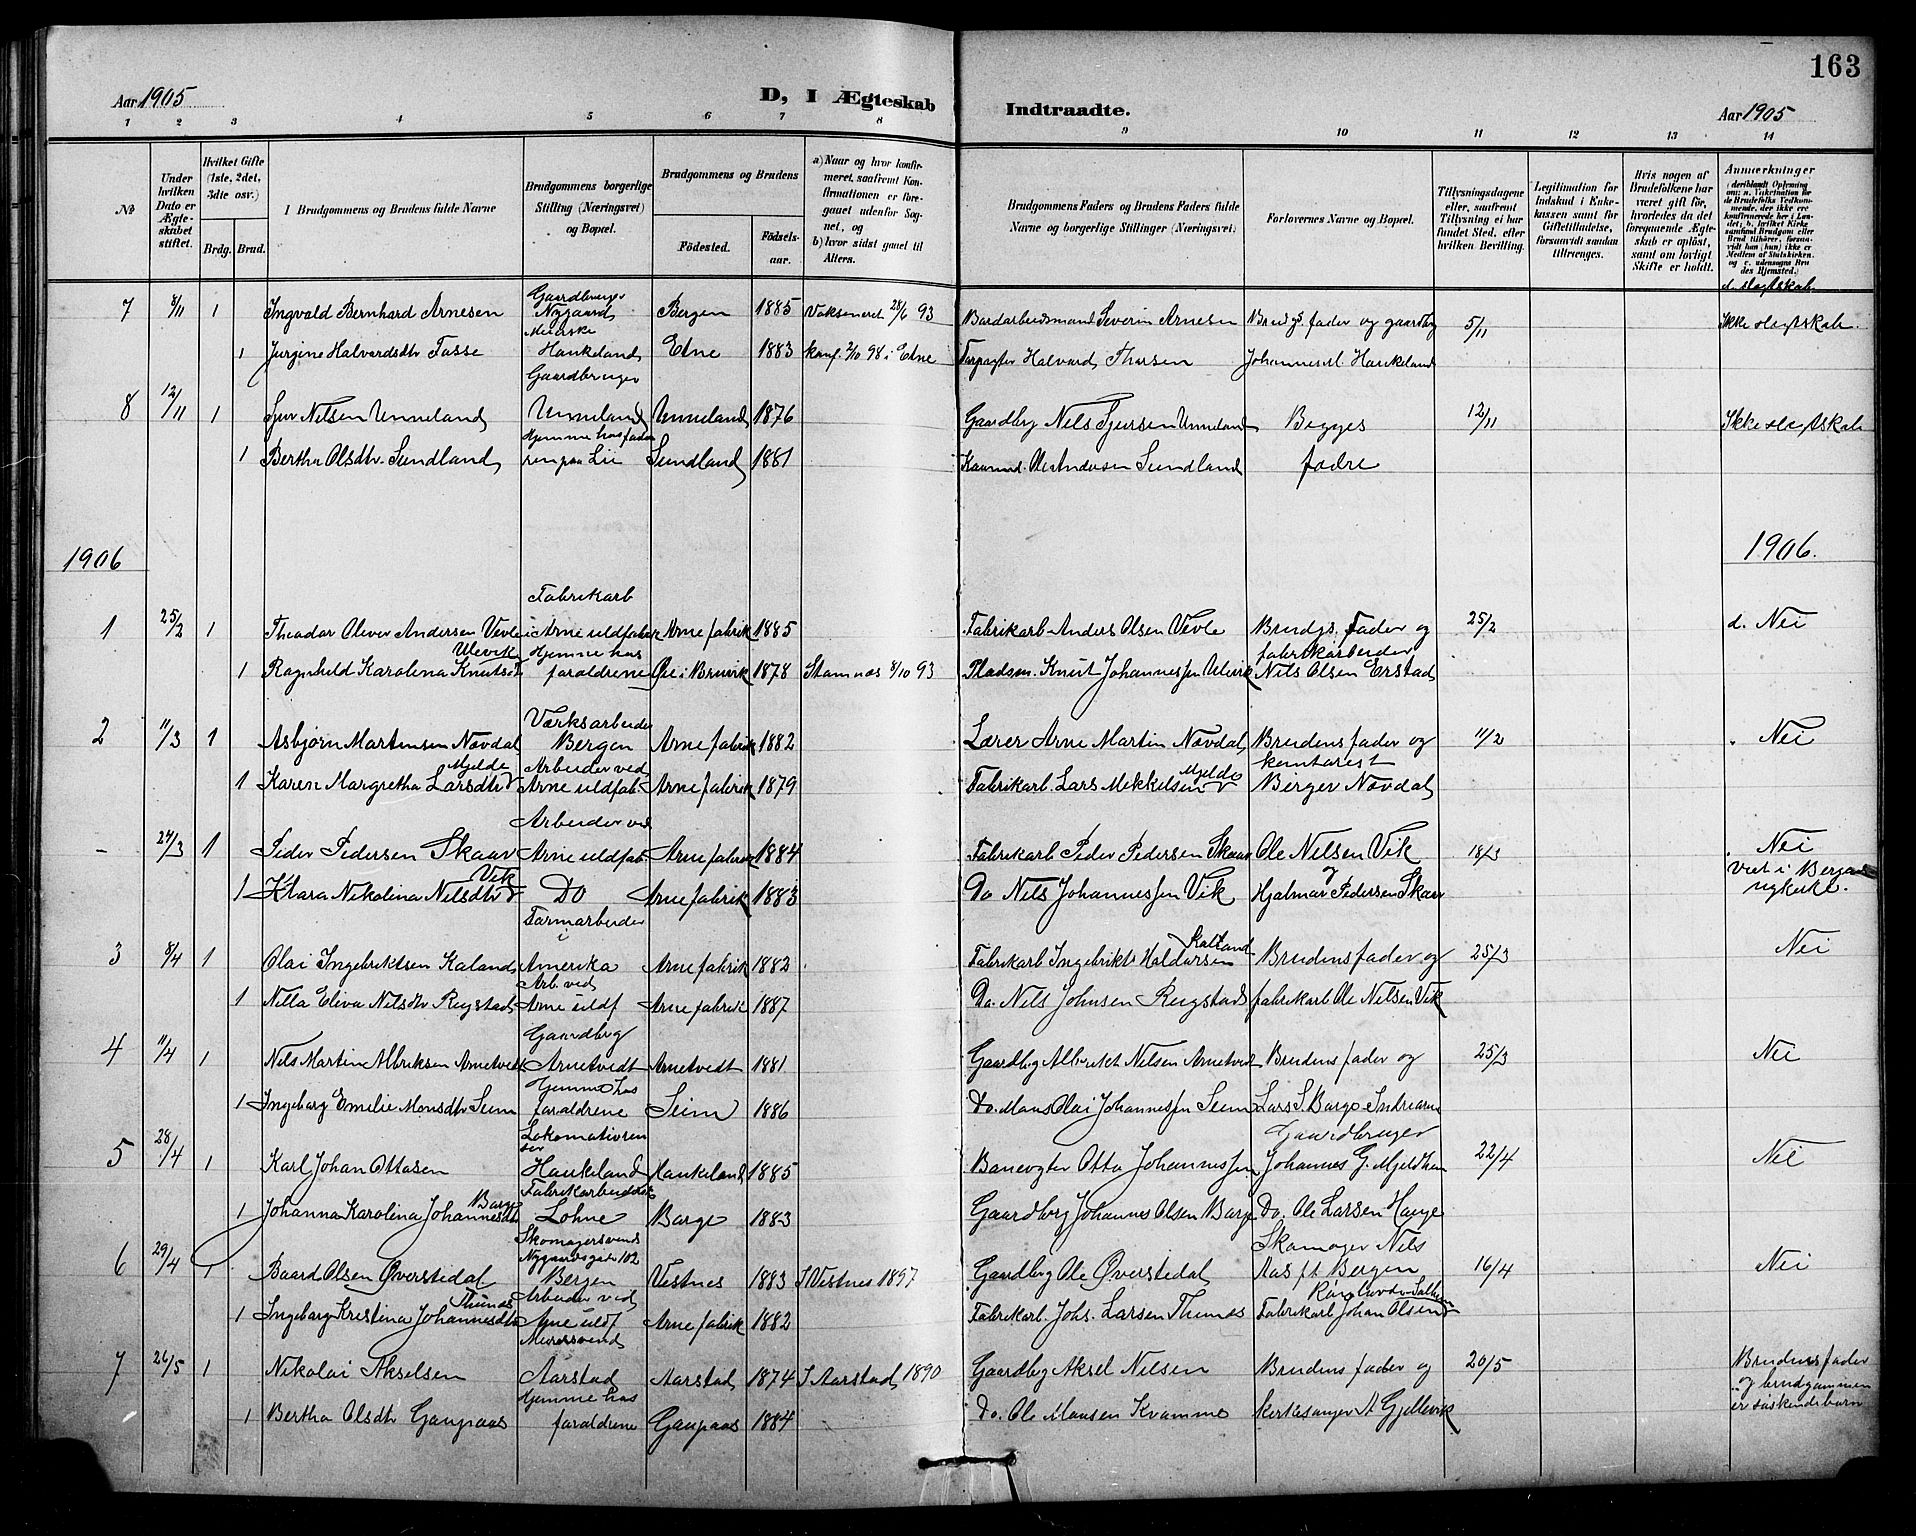 163
Aar 1905
D, I Ægteskab
Indtraadte.
Aar 1905
1 2 3 4 5 6 7 8 9 10 11 12 13 14
№
Under hvilken Dato er Ægteskabet stiftet.
Hvilket Gifte (1ste, 2det, 3die osv.)
Brdg. Brud.
I Brudgommens og Brudens fulde Navne
Brudgommens borgerlige Stilling (Næringsvei) og Bopæl.
Brudgommens og Brudens
Fødested.
Fødselsaar.
a) Naar og hvor konfirmeret, saafremt Konfirmationen er foregaaet udenfor Sognet, og
b) hvor sidst gaaet til Alters.
Brudgommens Faders og Brudens Faders fulde Navne og borgerlige Stillinger (Næringsvei)
Forlovernes Navne og Bopæl.
Tillysningsdagene eller, saafremt Tillysning ei har fundet Sted, efter hvilken Bevilling.
Legitimation for Indskud i Enkekassen samt for Giftetilladelse, forsaavidt saadan tiltrænges.
Hvis nogen af Brudefolkene har været gift før, hvorledes da det foregaaende Ægteskab er opløst, samt om lovligt Skifte er holdt.
Anmærkninger
d. slegtskab
7 8/11 1 Ingvald Bernhard Arnesen Gaardbruger Nygaard Bergen 1885 Vaksineret 28/6 93 Severin Arnesen Brudgs fader og gaardbg 5/11 Ikke slegtskab
1 Jurgine Halvardsdtr Tasse Haukeland Etne 1883 konf. 2/10 98 i Etne Halvard Thorsen Johannes M. Haukeland
8 12/11 1 Sjur Nilsen Unneland Gaardbruger Unneland Unneland 1876 Gaardbrg Nels Sjursen Unneland Begges 12/11 Ikke slegtskab
1 Bertha Olsdtr. Sundland Hjemme hos faderen paa Lie Sundland 1881 Ole Andersen Sundland fædre
1906
1906.
1 25/2 1 Theodor Oliver Andersen Vevle Fabrikarb i Arne uldfabrik Arne fabrik 1885 Fabrikarb Anders Olsen Vevle Brudgs. Fader og 25/2 d. Nei
1 Ragnhild Karolina Knutsdtr Ulevik Hjemme hos forældrene Øie i Bruvik 1878 Stamnæs 8/10 93 Pladsm. Knut Johannessen Ulevik fabrikarbeider Nils Olsen Erstad
2 11/3 1 Asbjørn Martinsen Nøvdal Værksarbeider Bergen Arne fabrik 1882 Lærer Arne Martin Nøvdal Brudens fader og 11/2 Nei
1 Karen Margretha Larsdtr Mjelde Arbeider ved Arne uldfab. Arne fabrik 1879 Fabrikarb. Lars Mikkelsen Mjelde kontorist Birger Nøvdal
- 24/3 1 Peder Pedersen Skaar Arbeider ved Arne uldfab Arne fabrik 1884 Fabrikarb Peder Pedersen Skaar Ole Nilsen Vik 18/3 Nei
1 Klara Nikolina Nilsdtr Vik Do Arne fabrik 1883 Do Nils Johannessen Vik og Hjalmar Pedersen Skaar Viet i Bergens nykirke.
3 8/4 1 Olai Ingebriktsen Kaland Farmarbeider i Amerika Arne fabrik 1882 Fabrikarb Ingebrikt Haldorsen Brudens fader og 25/3 Nei
1 Nilla Elina Nilsdtr Rugstad Arb. ved Arne uldf Arne fabrik 1887 Do. Nils Johnsen Rugstad fabrikarb Ole Nilsen Vik
4 11/4 1 Nils Martin Albriksen Arnetvedt Gaardbrg Arnetvedt Arnetvedt 1881 Gaardbg Albrikt Nilsen Arnetvedt Brudens fader og 25/3 Nei
1 Ingeborg Emilie Monsdtr Seim Hjemme hos forældrene Seim 1886 Do. Mons Olai Johannessen Seim Lars S. Borge Indrearne
5 28/4 1 Karl Johan Ottosen Lokomotivrenser Haukeland Haukeland 1885 Banevogter Otto Johannessen Gaardbruger Johannes G. Mjeldheim 22/4 Nei
1 Johanna Karolina Johannesdtr Borge Fabrikarbeiderske Lohne Borge 1883 Gaardbrg Johannes Olsen Borge Do. Ole Larsen Hauge
6 29/4 1 Baard Olsen Øverstedal Skomagersvend Nygaardsgt. 102 Bergen Vestnes 1883 I Vestnes 1897 Gaardbrg Ole Øverstedal Skomager Nils Aas ft Bergen 16/4 Nei
1 Ingeborg Kristina Johannesdtr Thunes Arbeider ved Arne uldf Arne fabrik 1882 Fabrikarb. Johs. Larsen Thunes Fabrikarb Johan Olsen
7 26/5 1 Nikolai Akselsen Murersvend Aarstad Aarstad 1874 I Aarstad 1890 Gaardbg Aksel Nilsen Brudens fader og 20/5 Brudens fader og brudgommen er søskendebarn
1 Bertha Olsdtr Gaupaas Hjemme hos forældrene Gaupaas 1884 Do. Ole Monsen Kvamme kirkesanger A Gjellevik